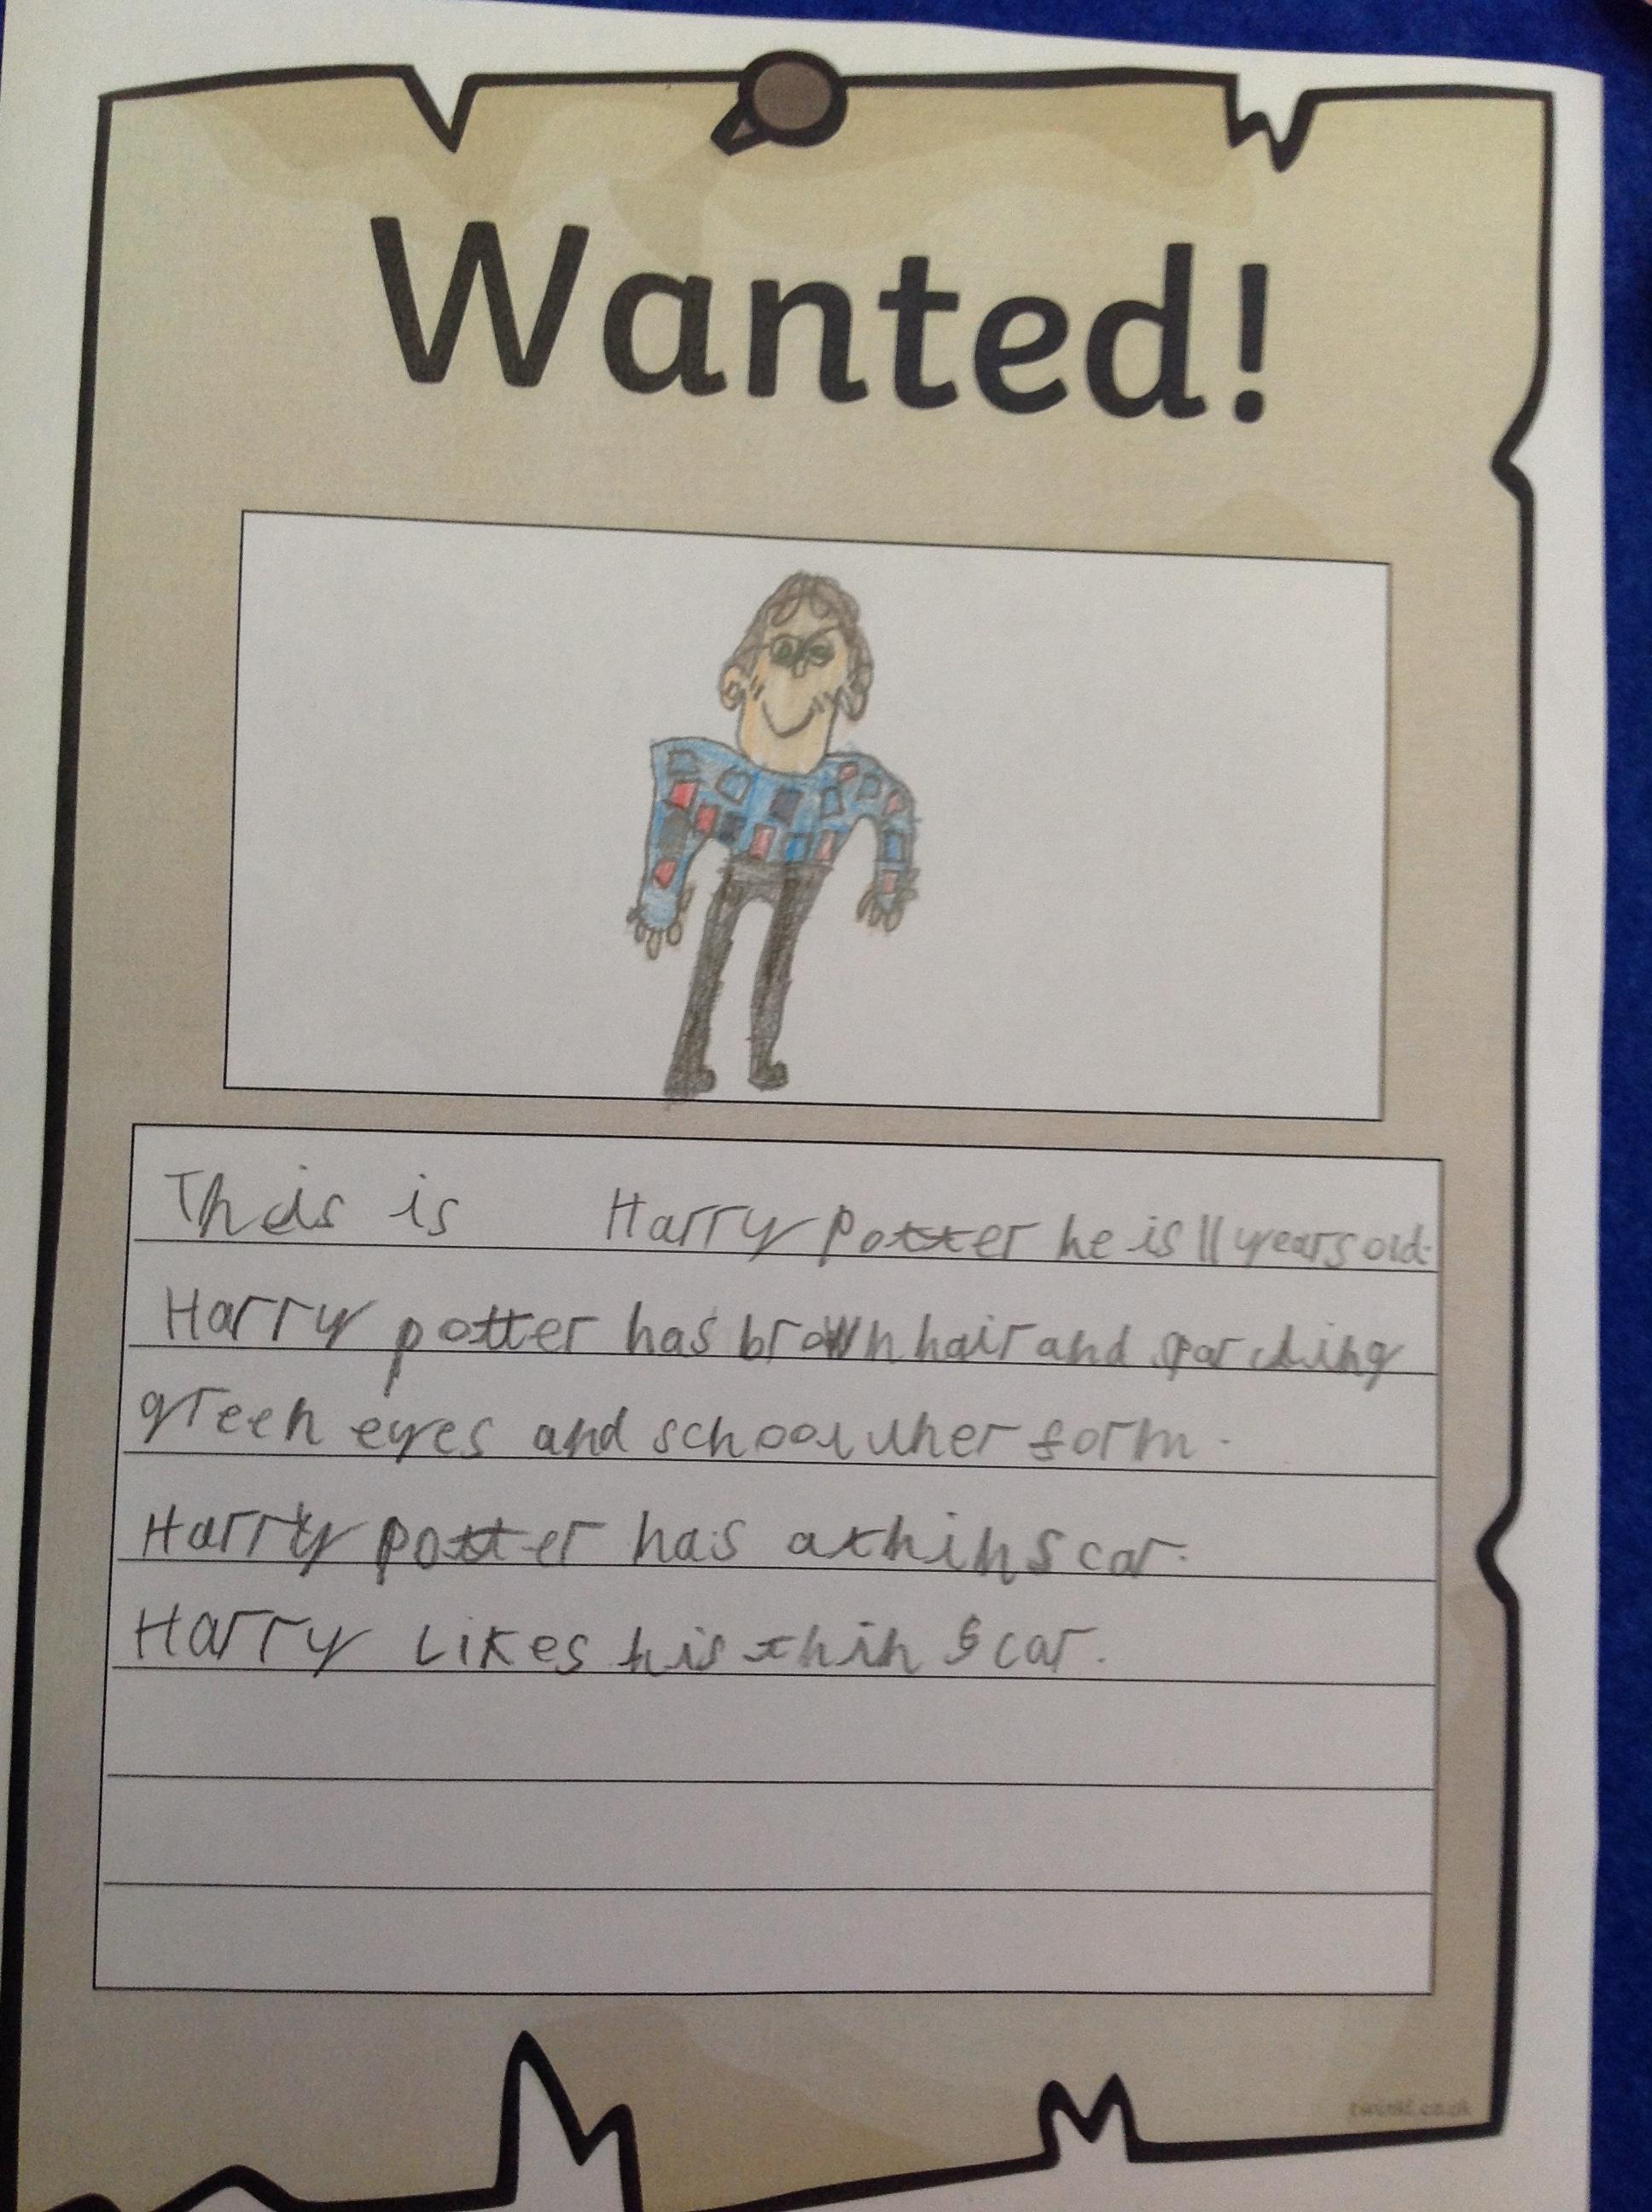 Wanted!
This is Harry potter he is 11 years old.
Harry potter has brown hair and sparcling
green eyes and school uner form.
Harry potter has a thin scar.
Harry Likes his thin scar.
twinkl.co.uk